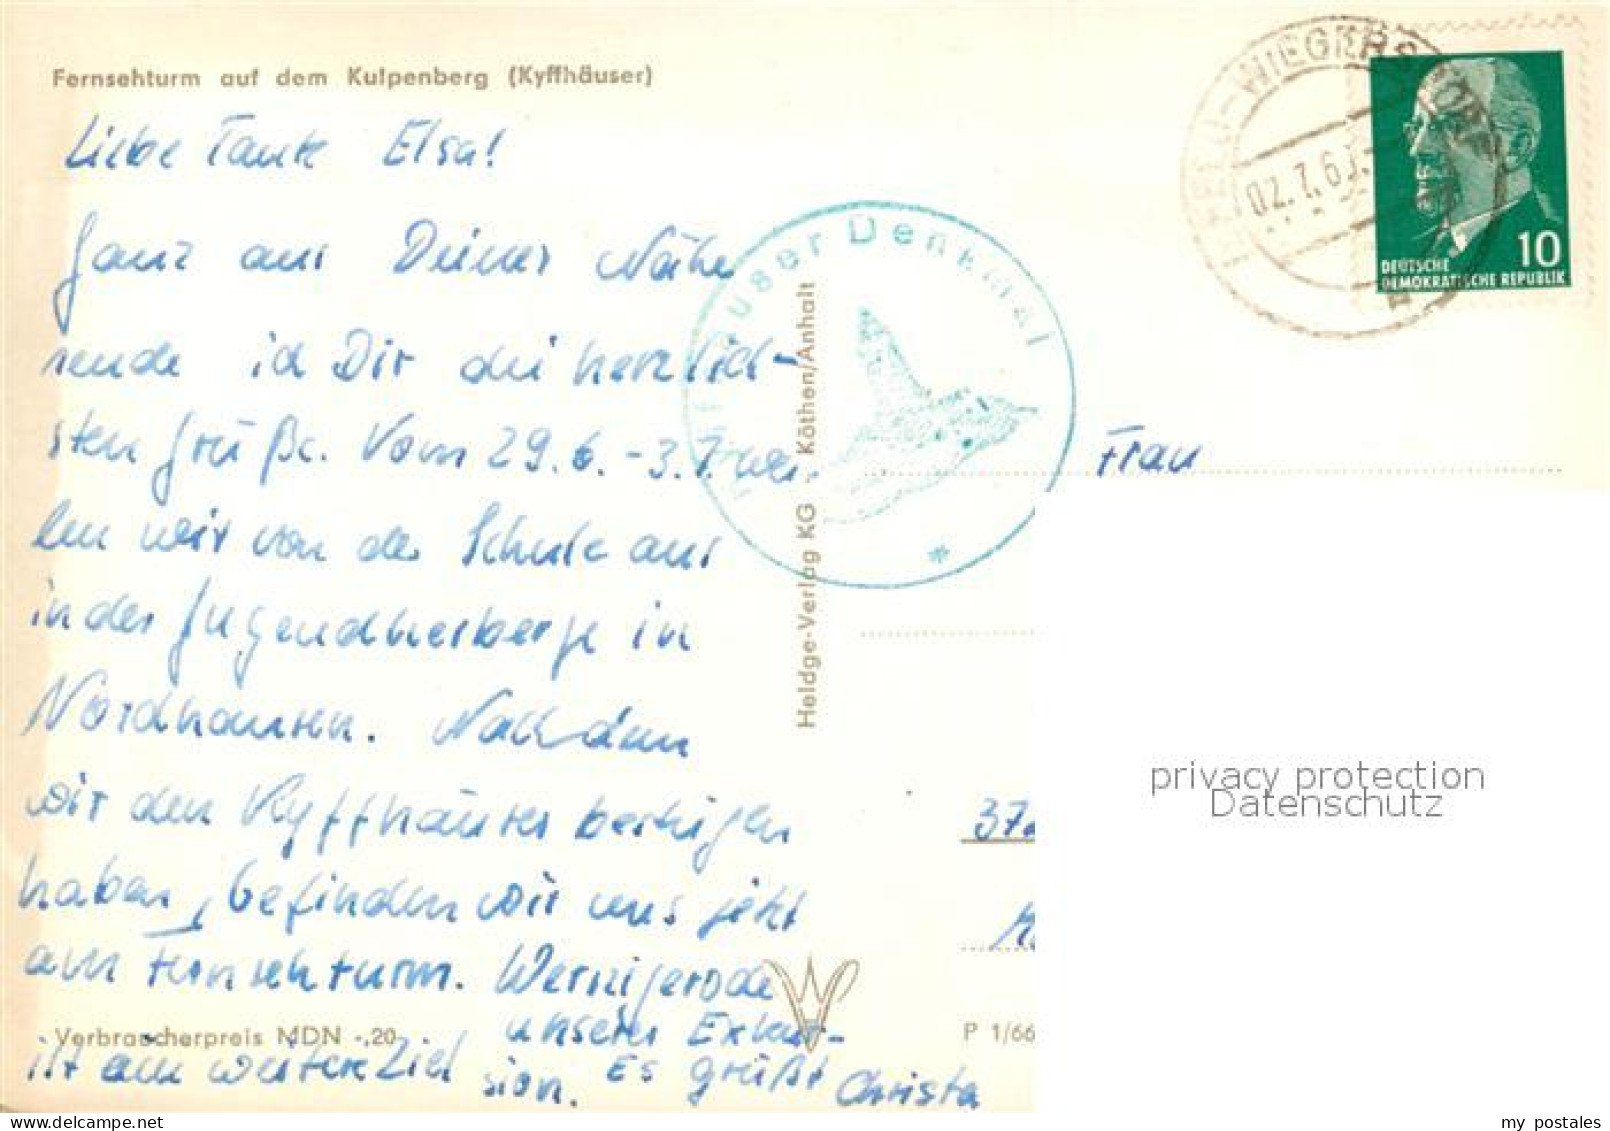 Fernsehturm auf dem Kulpenberg (Kyffhäuser)
Liebe Tante Elsa!
Ganz aus Deiner Nähe
sende ich Dir die herzlich-
sten Grüße. Vom 29.6. - 3.7. wei-
len wir von der Schule aus
in der Jugendherberge in
Nordhausen. Nachdem
wir den Kyffhäuser bestiegen
haben, befinden wir uns jetzt
am Fernsehturm. Wernigerode
ist ein weiteres Ziel unserer Exkur-
sion. Es grüßt Christa
Verbraucherpreis MDN -,20
Heldge-Verlag KG - Köthen/Anhalt
Kyffhäuser Denkmal
02.7.6
10
DEUTSCHE
DEMOKRATISCHE REPUBLIK
Frau
37
P 1/66
privacy protection
Datenschutz
my postales